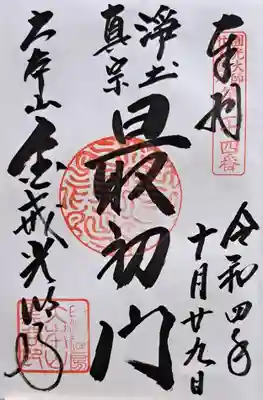 奉拝
令和四年
十月廿九日
浄土
真宗
最初門
大本山 金戒光明寺